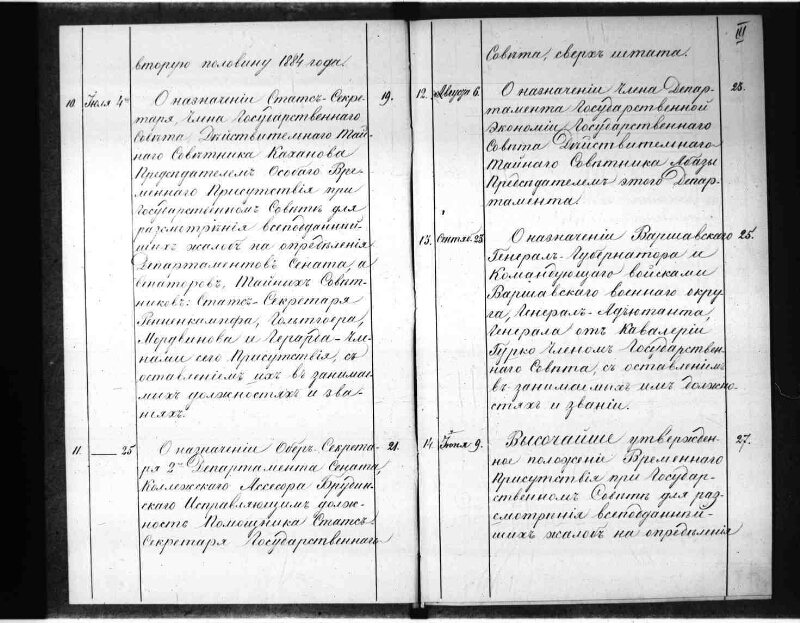 вторую половину 1884 года.
10. Іюля 4го О назначеніи Статсъ-Секре- 19.
таря, Члена Государственнаго
Совѣта, Дѣйствительнаго Тай-
наго Совѣтника Каханова
Предсѣдателемъ Особаго Вре-
меннаго Присутствія при
Государственномъ Совѣтѣ для
разсмотрѣнія всеподданнѣй-
шихъ жалобъ на опредѣленія
Департаментовъ Сената, а
сенаторовъ, Тайныхъ Совѣт-
никовъ: Статсъ-Секретаря
Ренненкампфа, Гольтгоера,
Мордвинова и Герарда - Чле-
нами сего Присутствія, съ
оставленіемъ ихъ въ занимае-
мыхъ должностяхъ и зва-
ніяхъ.
11. — 25 О назначеніи Оберъ-Секрета- 21.
ря 2го Департамента Сената,
Коллежскаго Ассесора
Исправляющимъ долж-
ность Помощника Статсъ-
Секретаря Государственнаго
III
Совѣта, сверхъ штата.
12. Августа 6. О назначеніи Члена Депар- 23.
тамента Государственной
Экономіи Государственнаго
Совѣта Дѣйствительнаго
Тайнаго Совѣтника Абазы
Предсѣдателемъ этого Депар-
тамента.
13. Сентяб. 23 О назначеніи Варшавскаго 25.
Генералъ-Губернатора и
Командующаго войсками
Варшавскаго военнаго окру-
га, Генералъ-Адъютанта,
Генерала отъ Кавалеріи
Гурко Членомъ Государствен-
наго Совѣта, съ оставленіемъ
въ занимаемыхъ имъ должно-
стяхъ и званіи.
14. Іюня 9. Высочайше утвержден- 27.
ное положеніе Временнаго
Присутствія при Государ-
ственномъ Совѣтѣ для раз-
смотрѣнія всеподданнѣй-
шихъ жалобъ на опредѣленія